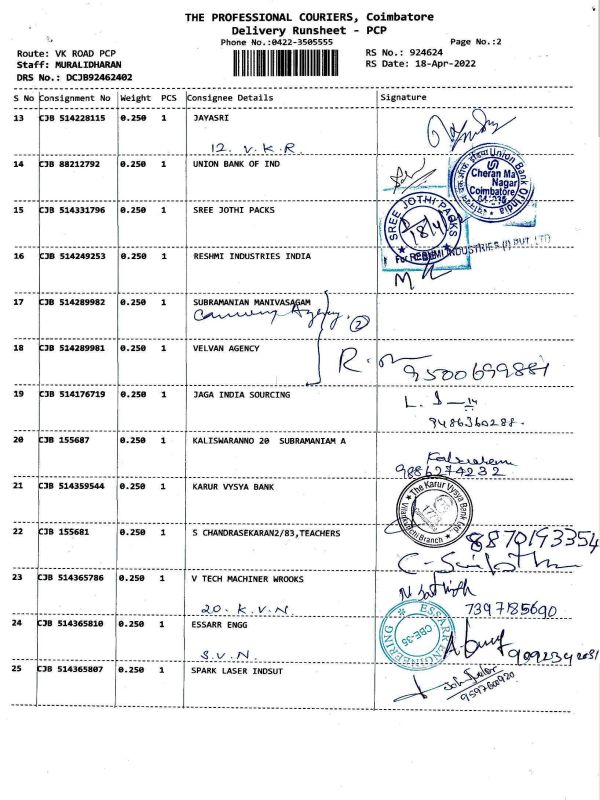 THE PROFESSIONAL COURIERS, Coimbatore
Delivery Runsheet - PCP
Phone No.:0422-3505555
Page No.:2
Route: VK ROAD PCP
RS No.: 924624
Staff: MURALIDHARAN
RS Date: 18-Apr-2022
DRS No.: DCJB92462402
S No Consignment No Weight PCS Consignee Details Signature
13 CJB 514228115 0.250 1 JAYASRI
12. V.K.R.
14 CJB 88212792 0.250 1 UNION BANK OF IND
Union Bank Of India
Cheran Ma
Nagar
Coimbatore
15 CJB 514331796 0.250 1 SREE JOTHI PACKS
SREE JOTHI PACKS
18/4
16 CJB 514249253 0.250 1 RESHMI INDUSTRIES INDIA
For RESHMI INDUSTRIES (I) PVT. LTD
17 CJB 514289982 0.250 1 SUBRAMANIAN MANIVASAGAM
Agency. 2
18 CJB 514289981 0.250 1 VELVAN AGENCY
9500699881
19 CJB 514176719 0.250 1 JAGA INDIA SOURCING
9486360288.
20 CJB 155687 0.250 1 KALISWARANNO 20 SUBRAMANIAM A
9886274232
21 CJB 514359544 0.250 1 KARUR VYSYA BANK
The Karur Vysya Bank Ltd.
Branch
22 CJB 155681 0.250 1 S CHANDRASEKARAN2/83,TEACHERS
8870193354
23 CJB 514365786 0.250 1 V TECH MACHINER WROOKS
20. K.V.N.
7397185690
24 CJB 514365810 0.250 1 ESSARR ENGG
ESSARK ENGINEERING
CBE-35
S.V.N.
25 CJB 514365807 0.250 1 SPARK LASER INDSUT
9597600920